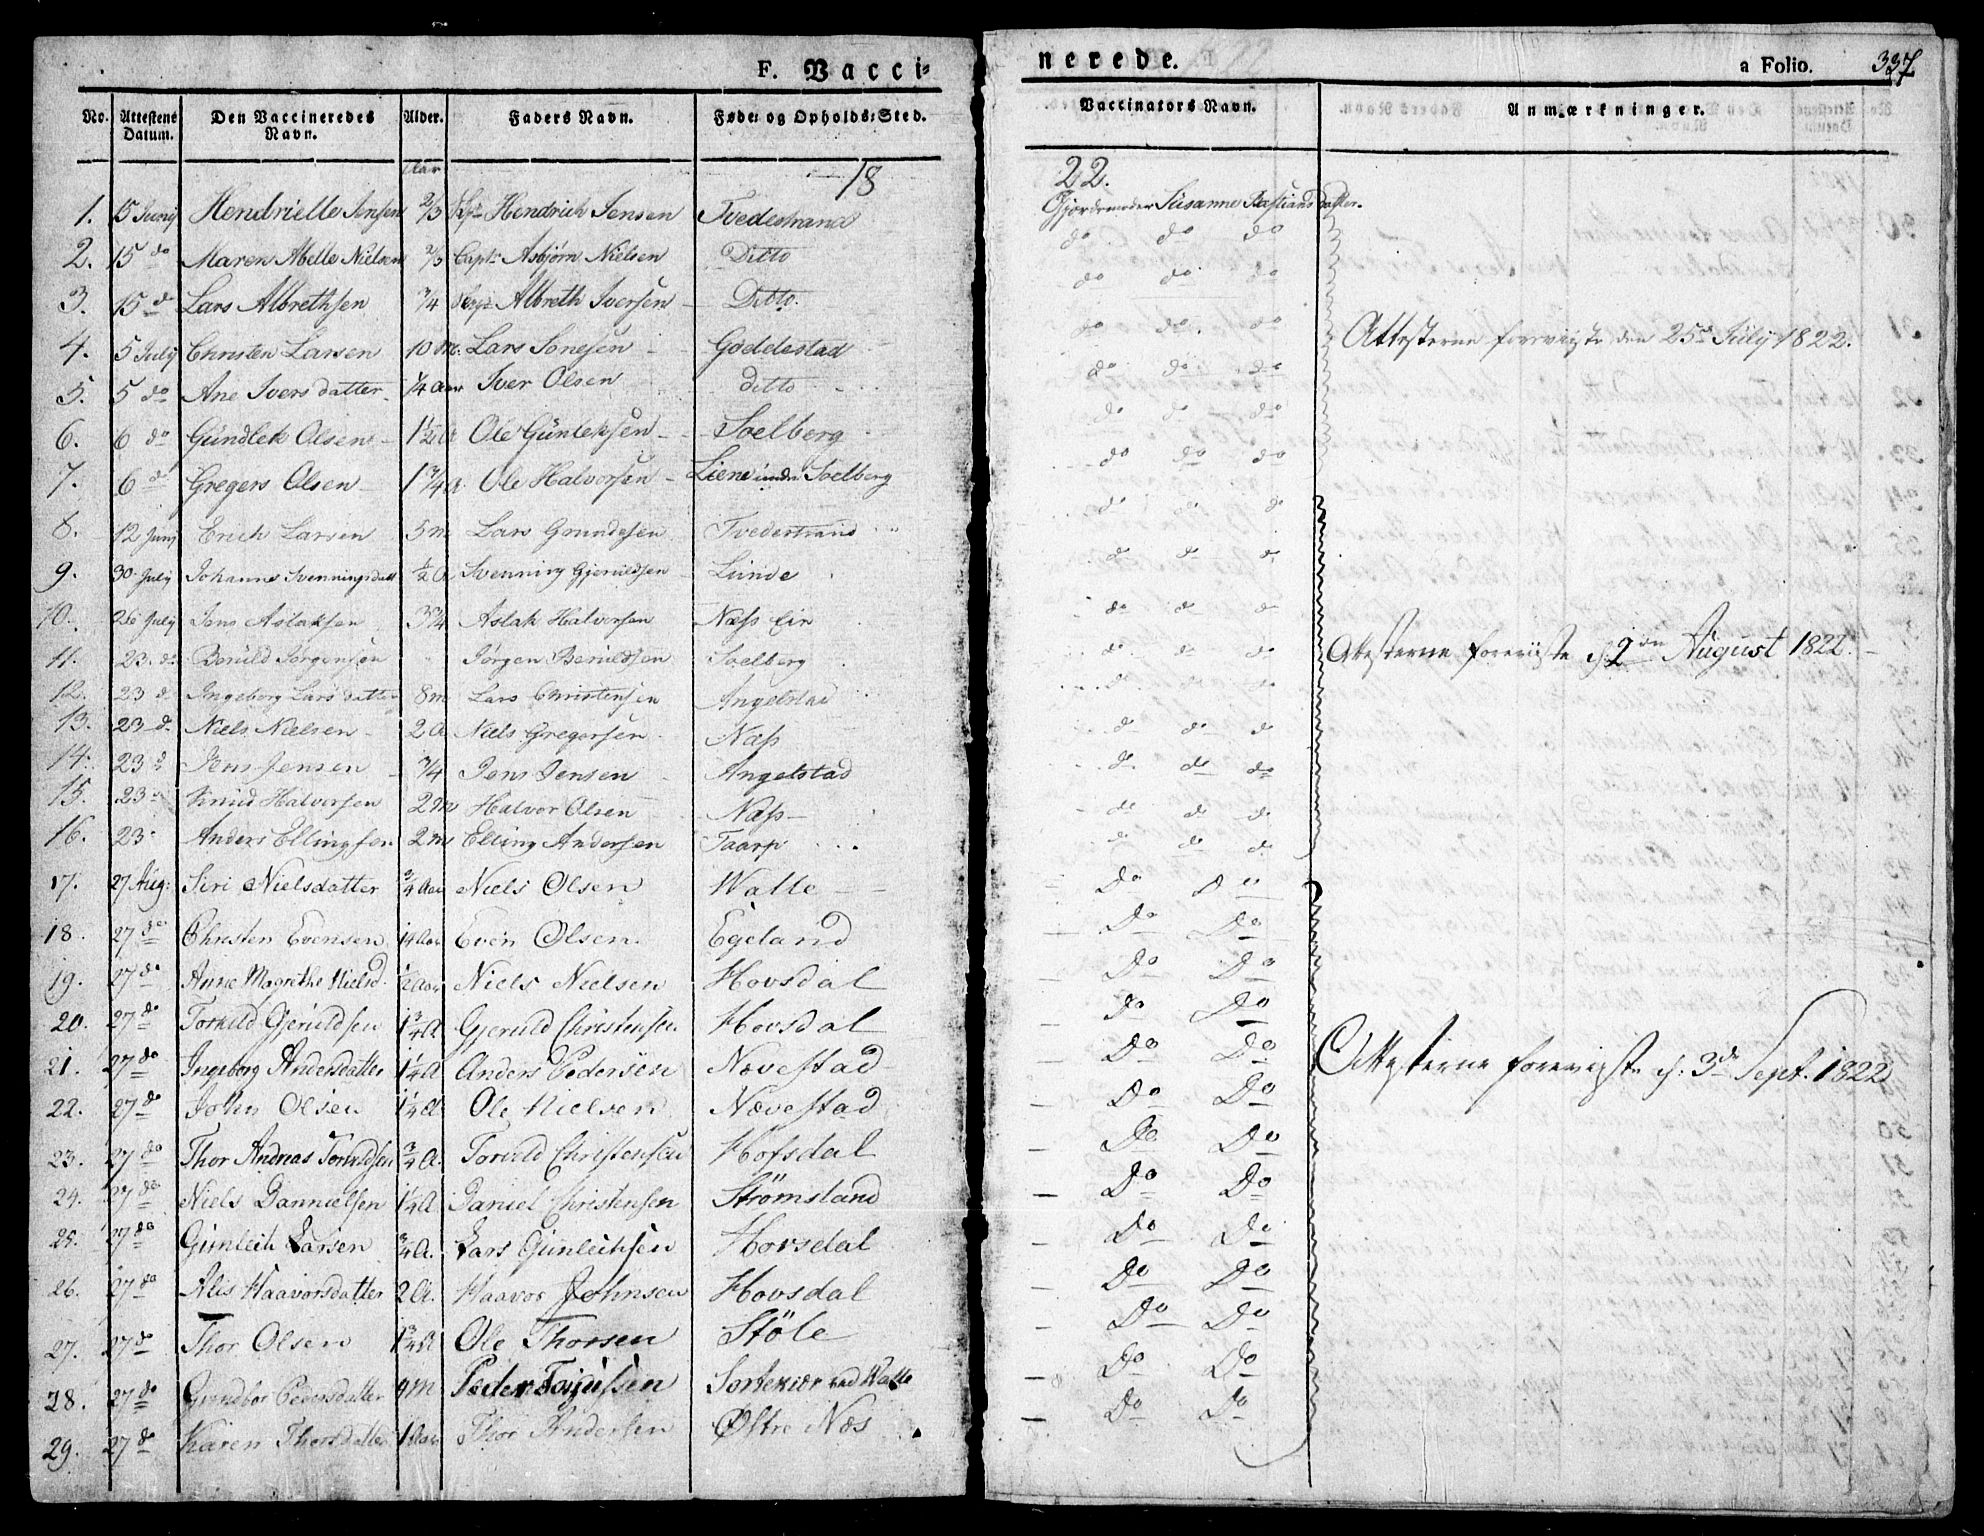 F. Vacci-
nerede.
a Folio. 337
No. Attestens Datum. Den Vaccineredes Navn. Alder. Faders Navn. Føde- og Opholds-Sted. Vaccinators Navn. Anmærkninger.
Aar 18 22.
1. 15 Junij Hendrielle Jensen 2/3 Hendrich Jensen Tvedestrand Gjordemoder Susanne Bastiansdatter.
2. 15 do Maren Abelle Nielsen 2/3 Capt: Asbjørn Nielsen Ditto do do do
3. 15 do Lars Albrethsen 3/4 Albreth Iversen Ditto. do do do
4. 5 July Christen Larsen 10 M. Lars Jonesen Goddestad do do do
Attesterne foreviiste den 25de July 1822.
5. 5 do Ane Ivers datter 1/4 Aar Iver Olsen ditto do do do
6. 6 do Gundlek Olsen 1 1/2 A Ole Gunleksen Soelberg do do do
7. 6 do Gregers Olsen 1 3/4 A Ole Halvorsen Liene under Soelberg do do do
8. 12 Junj Erich Larsen 5 m Lars Grundesen Tvedestrand do do do
9. 30 July Johanne Svenningsdatt 1/2 A Svenning Gjeruldsen Lunde do do do
10. 26 July Jens Aslaksen 3 3/4 Aslak Halvorsen Næss Eie do do do
11. 23. do Beruld Jørgensen " Jørgen Beruldsen Soelberg do do do
Attesterne foreviiste d. 2den August 1822.
12. 23 d Ingeborg Lars datter 8 m Lars Christensen Angelstad do do do
13. 23 d. Niels Nielsen 2 A Niels Gregersen Næss do do do
14. 23 d Jens Jensen 3/4 Jens Jensen Angelstad do do do
15. 23 Knud Halvorsen 2 M Halvor Olsen Næss do do do
16. 23 Anders Ellingsen 2 m Elling Andersen Taarp do do do
17. 27 Aug: Siri Nielsdatter 3/4 Aar Niels Olsen Walle Do Do
18. 27 do Christen Evensen 14 Aar Even Olsen. Egeland Do Do
19. 27 do Anne Magrethe Nielsd. 1/2 Aar Niels Nielsen Hovsdal Do Do
20. 27 do Torkild Gjeruldsen 1 3/4 A Gjeruld Christensen Hovsdal Do Do
21. 27 do Ingeborg Andersdatter 1 1/4 A Anders Pedersen Nævestad Do Do
Attesterne foreviiste d. 3de Sept. 1822
22. 27 do John Olsen 1 1/4 A Ole Nielsen Nævestad Do Do
23. 27 do Thor Andreas Toruldsen 3/4 A. Toruld Christensen Hofsdal Do Do
24. 27 do Niels Dannielsen 1 1/4 A Daniel Christensen Strømsland Do Do
25. 27 do Gunleik Larsen 3/4 A. Lars Gunleiksen Hovsdal Do Do
26. 27 do Alis Haavorsdatter 2 A. Haavor Johnsen Hovsdal Do Do
27. 27 do Thor Olsen 1 3/4 A Ole Thorsen Støle Do Do
28. 27 do Gundbor Pedersdatter 9 M Peder Torjussen ved Walle Do Do
29. 27 do Karen Thorsdatter 1 Aar Thor Andersen Østre Næs Do Do